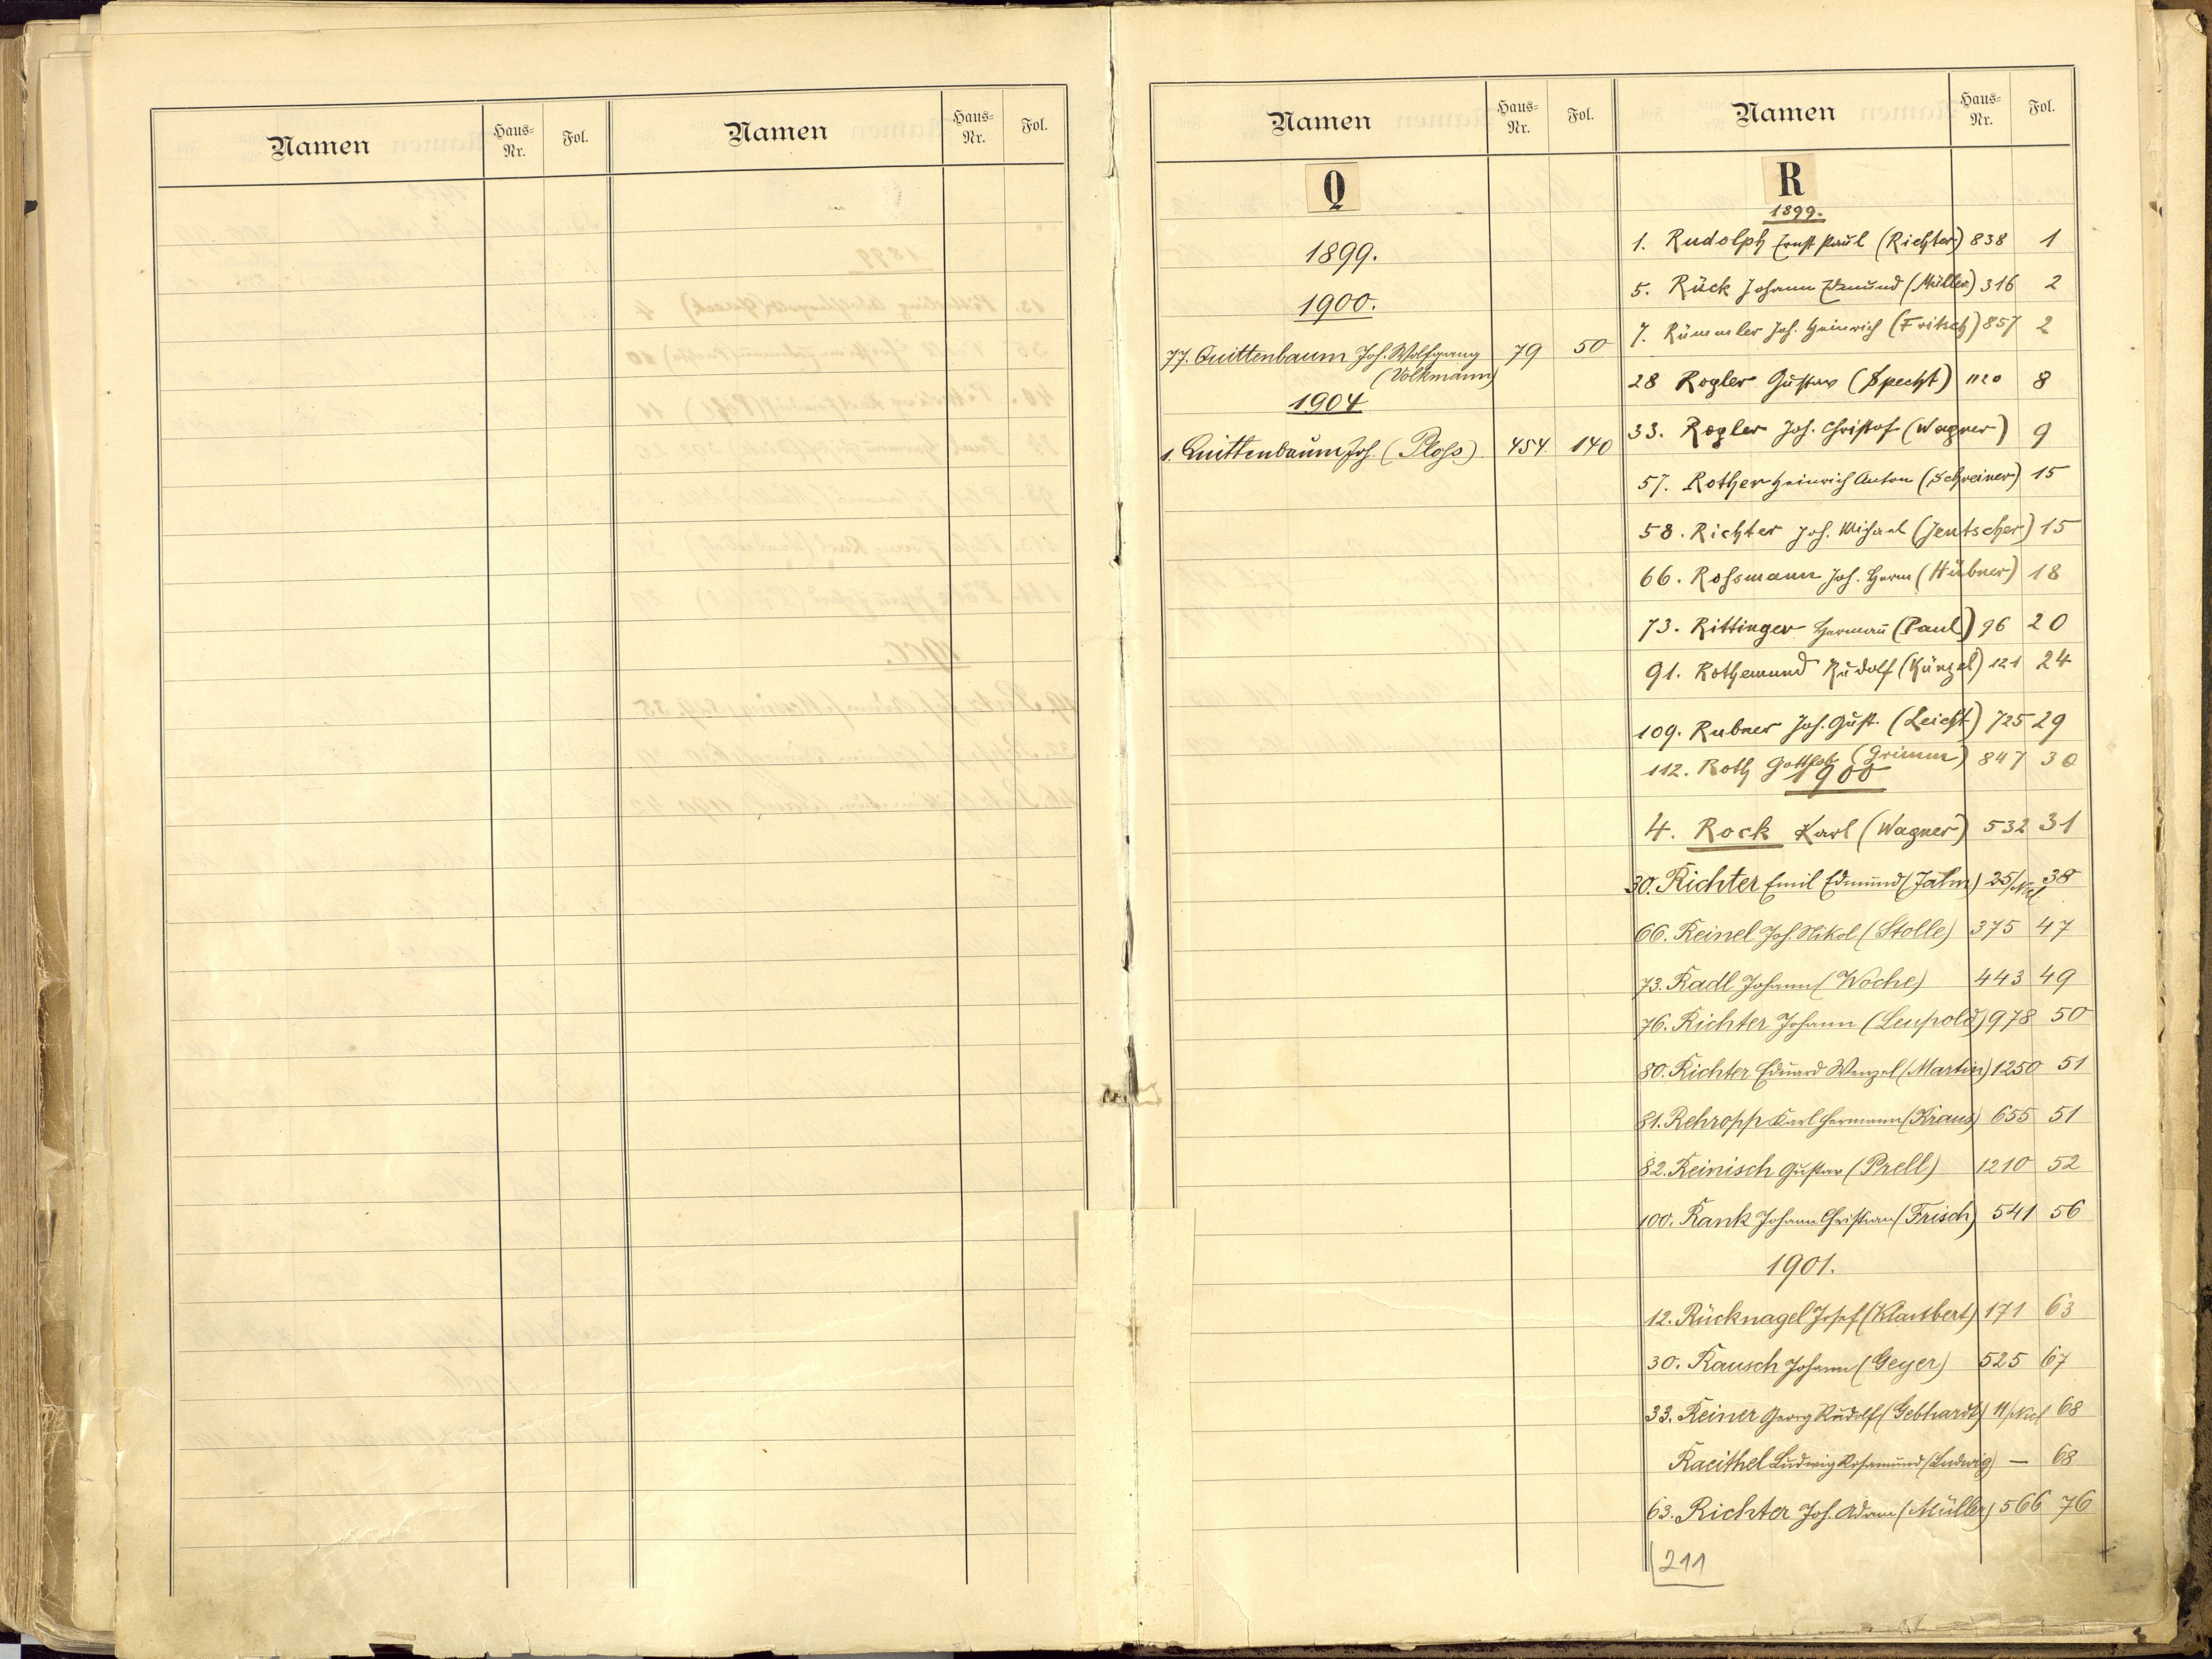 Namen Haus-Nr. Fol. Namen Haus-Nr. Fol.
Namen Haus-Nr. Fol.
Q
1899.
1900.
77. Quittenbaum Joh. Wolfgang 79 50
(Volkmann)
1904
1. Quittenbaum Joh. (Ploss) 454. 140
Namen Haus-Nr. Fol.
R
1899.
1. Rudolph Ernst Paul (Richter) 838 1
5. Rück Johann Edmund (Müller) 316 2
7. Rümmler Joh. Heinrich (Fritsch) 857 2
28 Rogler Gustav (Specht) 1120 8
33. Rogler Joh. Christof (Wagner) 9
57. Rother Heinrich Anton (Schreiner) 15
58. Richter Joh. Michael (Jentscher) 15
66. Rossmann Joh. Herm (Hübner) 18
73. Rittinger Hermañ (Paul) 96 20
91. Rothemund Rudolf (Künzel) 121 24
109. Rubner Joh. Gust. (Leicht) 725 29
112. Roth Gottlob (Grimm) 847 30
1900
4. Rock Karl (Wagner) 532 31
30. Richter Emil Edmund (Jahn) 25/ 38
66. Reinel Joh. Nikol (Stolle) 375 47
73. Radl Johann (Woche) 443 49
76. Richter Johann (Leupold) 978 50
80. Richter Eduard Wenzel (Martin) 1250 51
81. Rehropp Karl Hermann (Kraus) 655 51
82. Reinisch Gustav (Prell) 1210 52
100. Rank Johann Christian (Frisch) 541 56
1901.
12. Rücknagel Josef (Klautbert) 171 63
30. Rausch Johann (Geyer) 525 67
33. Reiner Georg Rudolf (Gebhardt) 11/ 68
Raeithel Ludwig Rosamund (Ludwig) — 68
63. Richter Joh. Adam (Müller) 566 76
211